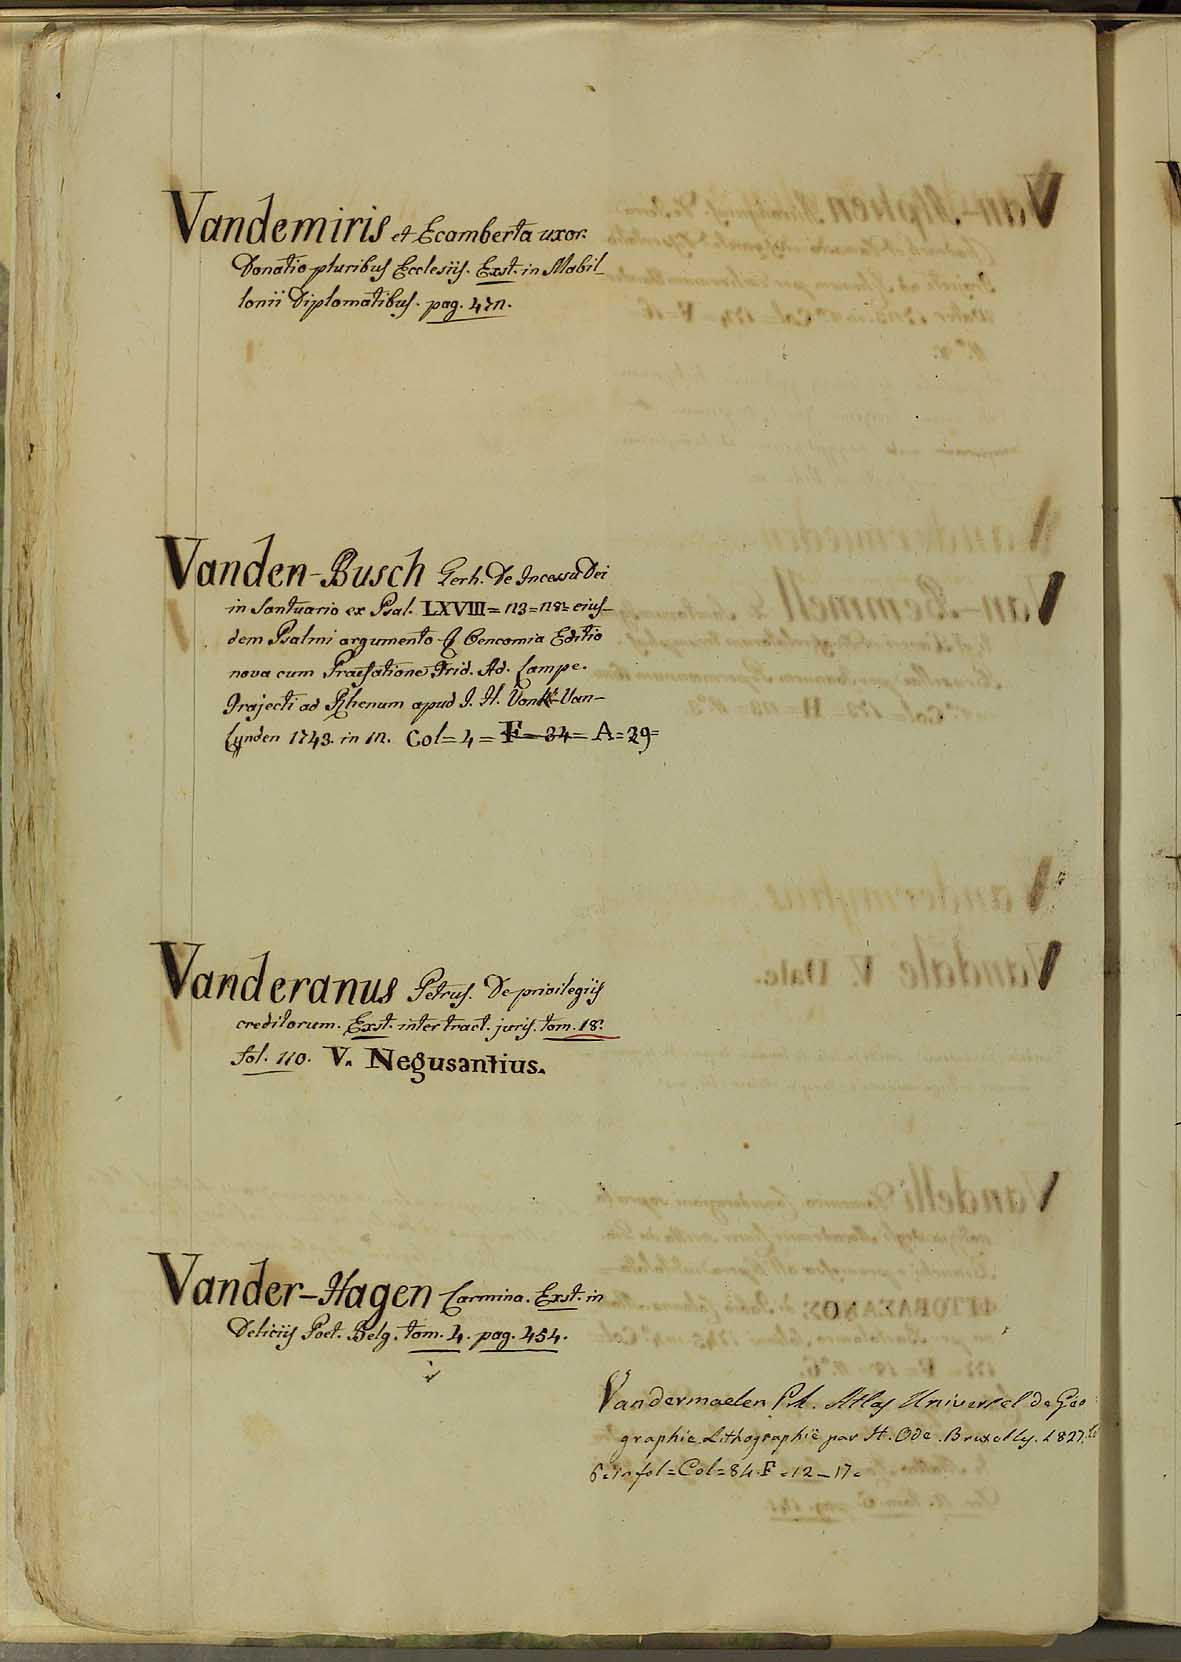 Vandemiris et Ecamberta uxor.
Donatio pluribus Ecclesiis. Exst. in Mabil-
lonii Diplomatibus. pag. 472.
Vanden-Busch Gerh. De Incessu Dei
in Santuario ex Psal. LXVIII = 113 = 118 = eius-
dem Psalmi argumento & Cencomia Editio
nova cum Praefatione Frid. Ad. Lampe.
Trajecti ad Rhenum apud J. H. Vonk Van-
Lynden 1743. in 12. Col = 4 = F = 34 = A = 29 =
Vanderanus Petrus. De privilegiis
creditorum. Exst. inter tract. juris. tom. 18.
fol. 110. V. Negusantius.
Vander-Hagen Carmina. Exst. in
Deliciis Poet. Belg. tom. 4. pag. 454.
Vandermaelen Ph. Atlas Universel de Geo
graphie Lithographié par H. Ode. Bruxelles. 1827.
6. in fol = Col = 84. F = 12 - 17 =